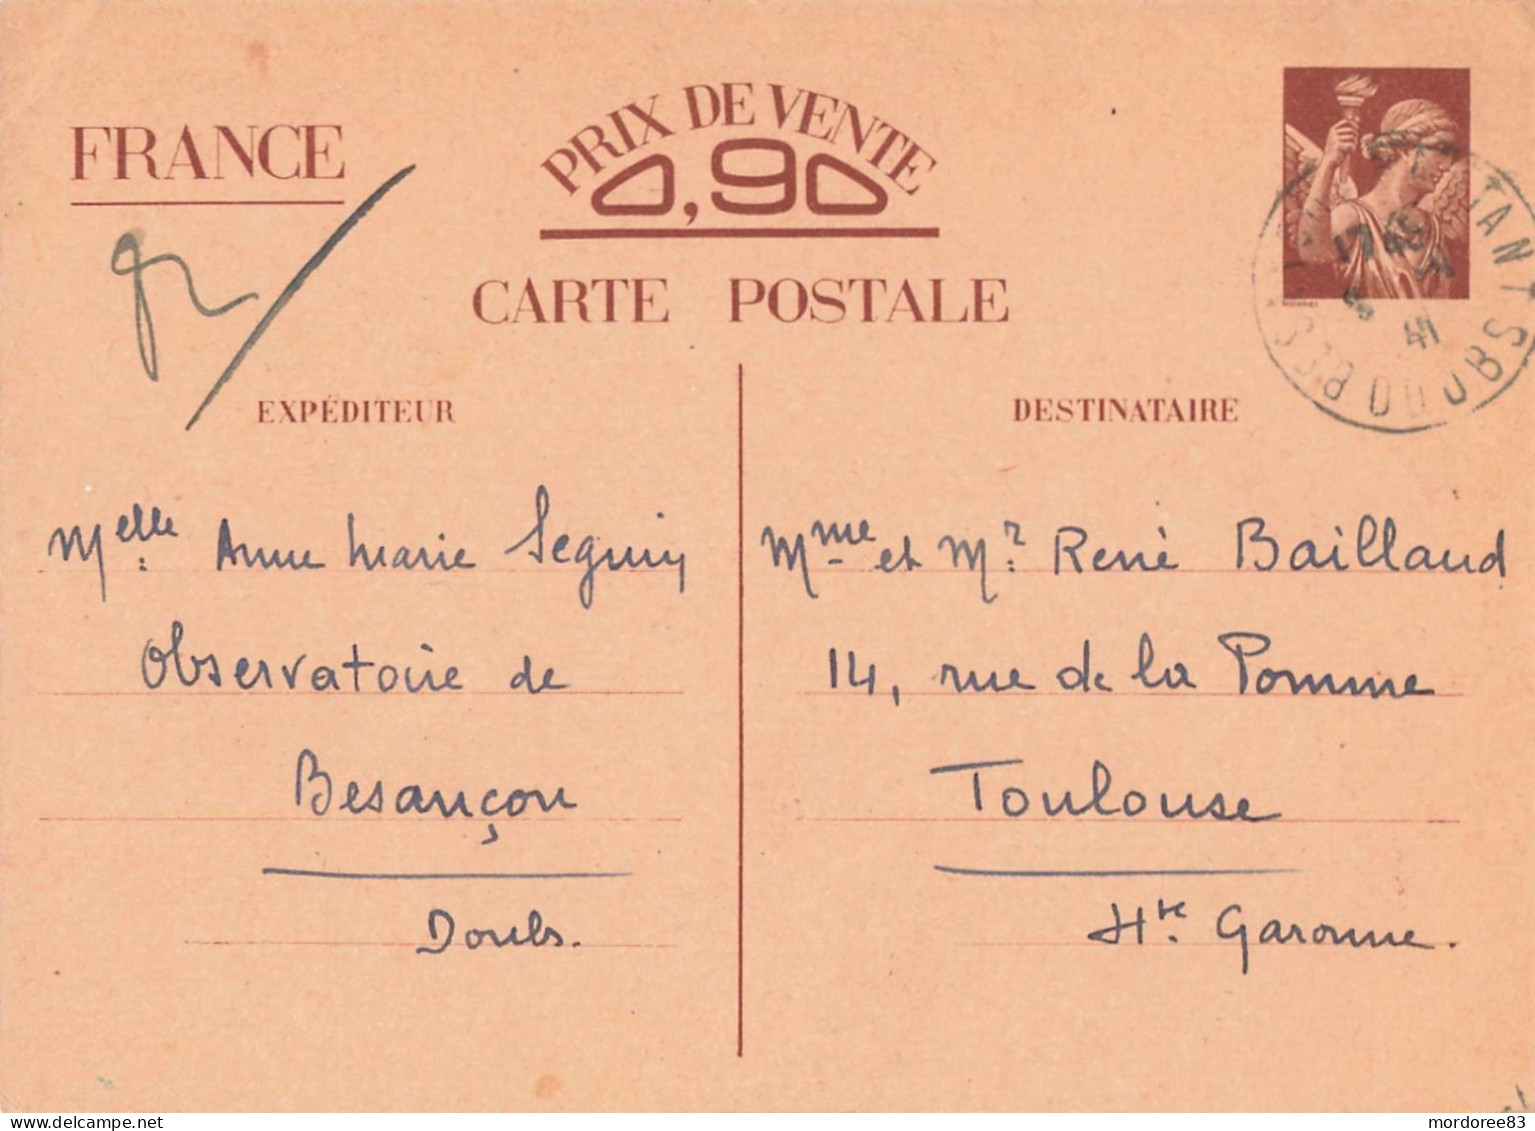 FRANCE
PRIX DE VENTE
0,90
CARTE POSTALE
EXPÉDITEUR
Melle: Anne Marie Seguin
Observatoire de
Besançon
Doubs.
DESTINATAIRE
Mme et Mr: René Bailland
14, rue de la Pomme
Toulouse
Hte. Garonne.
17 45
41
DOUBS
mordoree83